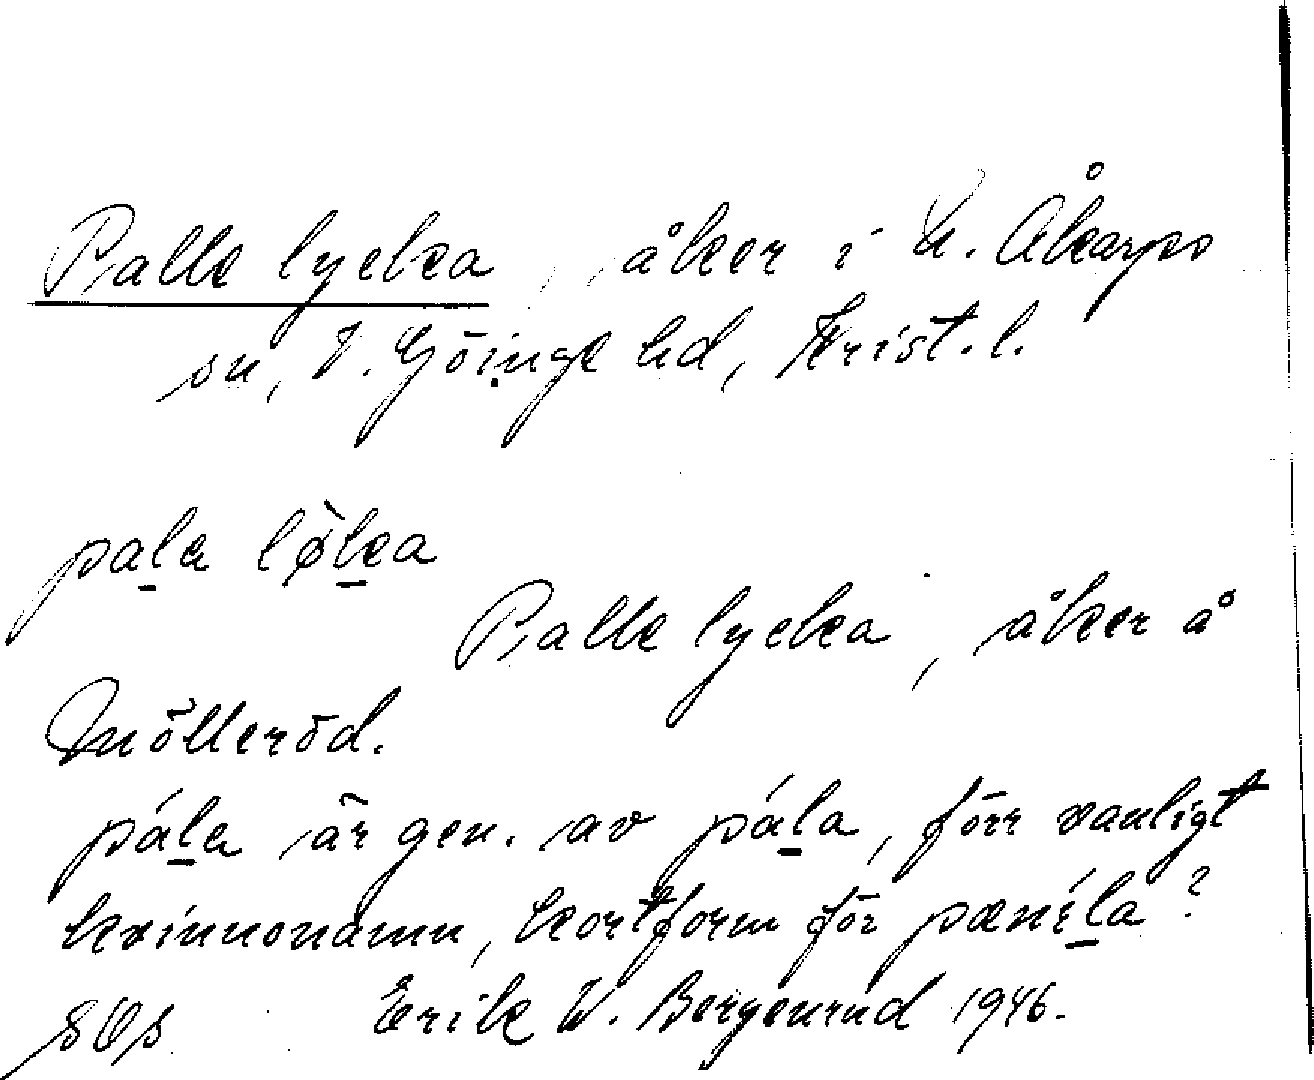 Palle lycka, åker i N. Åkarps
sn, V. Göinge hd, Krist. l.
pala løka
Palle lycka, åker å
Mölleröd.
pála är gen. av pála, förr vanligt
kvinnonamn, kortform för pæníla?
Erik W. Bergenrud 1946.